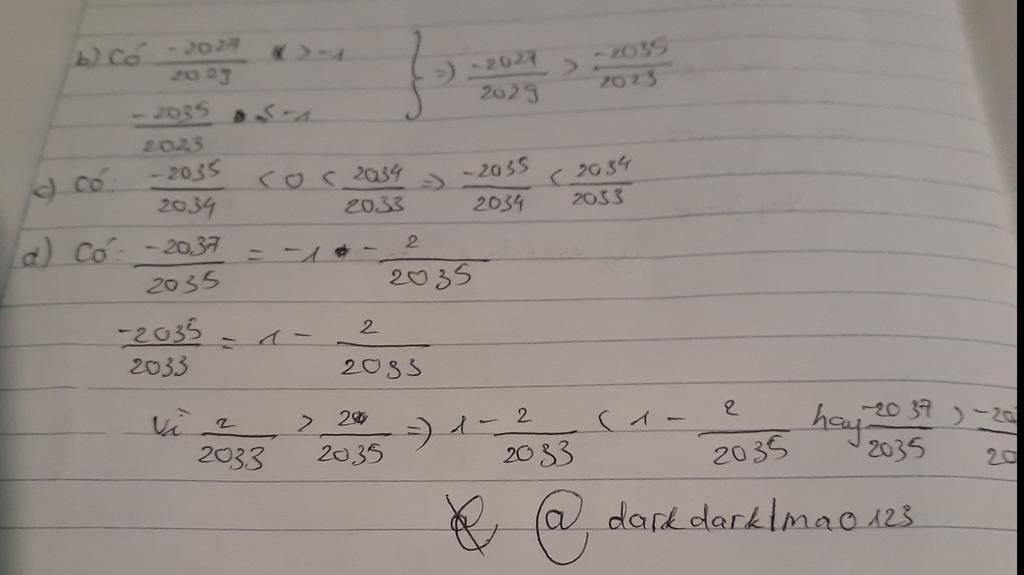 b) Có: -2027/2029 > -1 } => -2027/2029 > -2035/2023
-2035/2023 < -1
c) Có: -2035/2034 < 0 < 2034/2033 => -2035/2034 < 2034/2033
d) Có: -2037/2035 = -1 - 2/2035
-2035/2033 = 1 - 2/2033
Vì 2/2033 > 2/2035 => 1 - 2/2033 < 1 - 2/2035 hay -2037/2035 >
@ darkdarklmao123